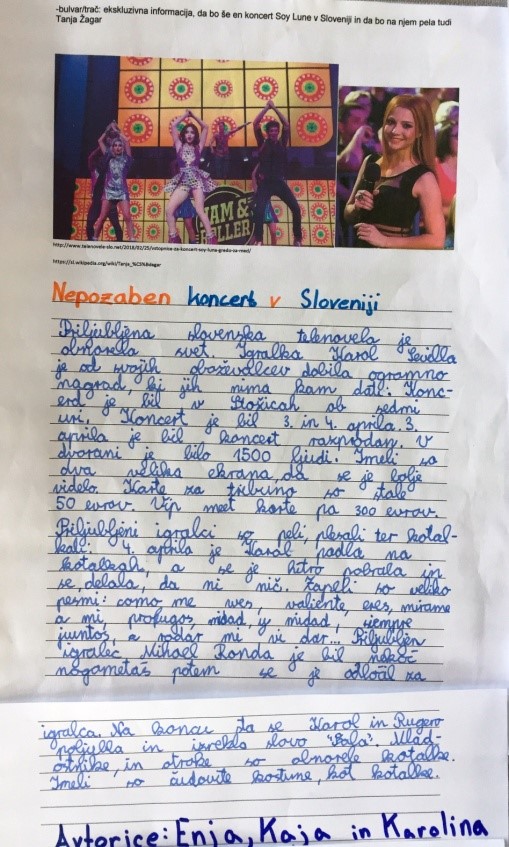 -bulvar/trač: ekskluzivna informacija, da bo še en koncert Soy Lune v Sloveniji in da bo na njem pela tudi
Tanja Žagar
JAM &
ROLLER
http://www.telenovele-slo.net/2018/02/25/vstopnice-za-koncert-soy-luna-gredo-za-med/
https://sl.wikipedia.org/wiki/Tanja_%C5%BDagar
Nepozaben koncert v Sloveniji
Priljubljena slovenska telenovela je
obnorela svet. Igralka Karol Sevilla
je od svojih oboževalcev dobila ogromno
nagrad, ki jih nima kam dati. Konc-
erd je bil v Stožicah ob sedmi
uri. Koncert je bil 3. in 4. aprila. 3.
aprila je bil koncert razprodan. V
dvorani je bilo 1500 ljudi. Imeli so
dva velika ekrana, da se je bolje
videlo. Karte za tribuno so stale
50 eurov. Vip meet karte pa 300 eurov.
Priljubljeni igralci so peli, plesali ter kotal-
kali. 4. aprila je Karol padla na
kotalkah, a se je hitro pobrala in
se delala, da ni nič. Zapeli so veliko
pesmi: como me ves, valiente, eres, mirame
a mi, profugos, nidad, y nidad, siempre
juntos, a rodar mi vi dar... Priljubljen
igralec Mihael Ronda je bil nekoč
nogometaš potem se je odločil za
igralca. Na koncu sta se Karol in Rugero
poljubila in izrekla slovo "Fala". Mlad-
ostnike, in otroke so obnorele kotalke.
Imeli so čudovite kostume, kot kotalke.
Avtorice: Enja, Kaja in Karolina